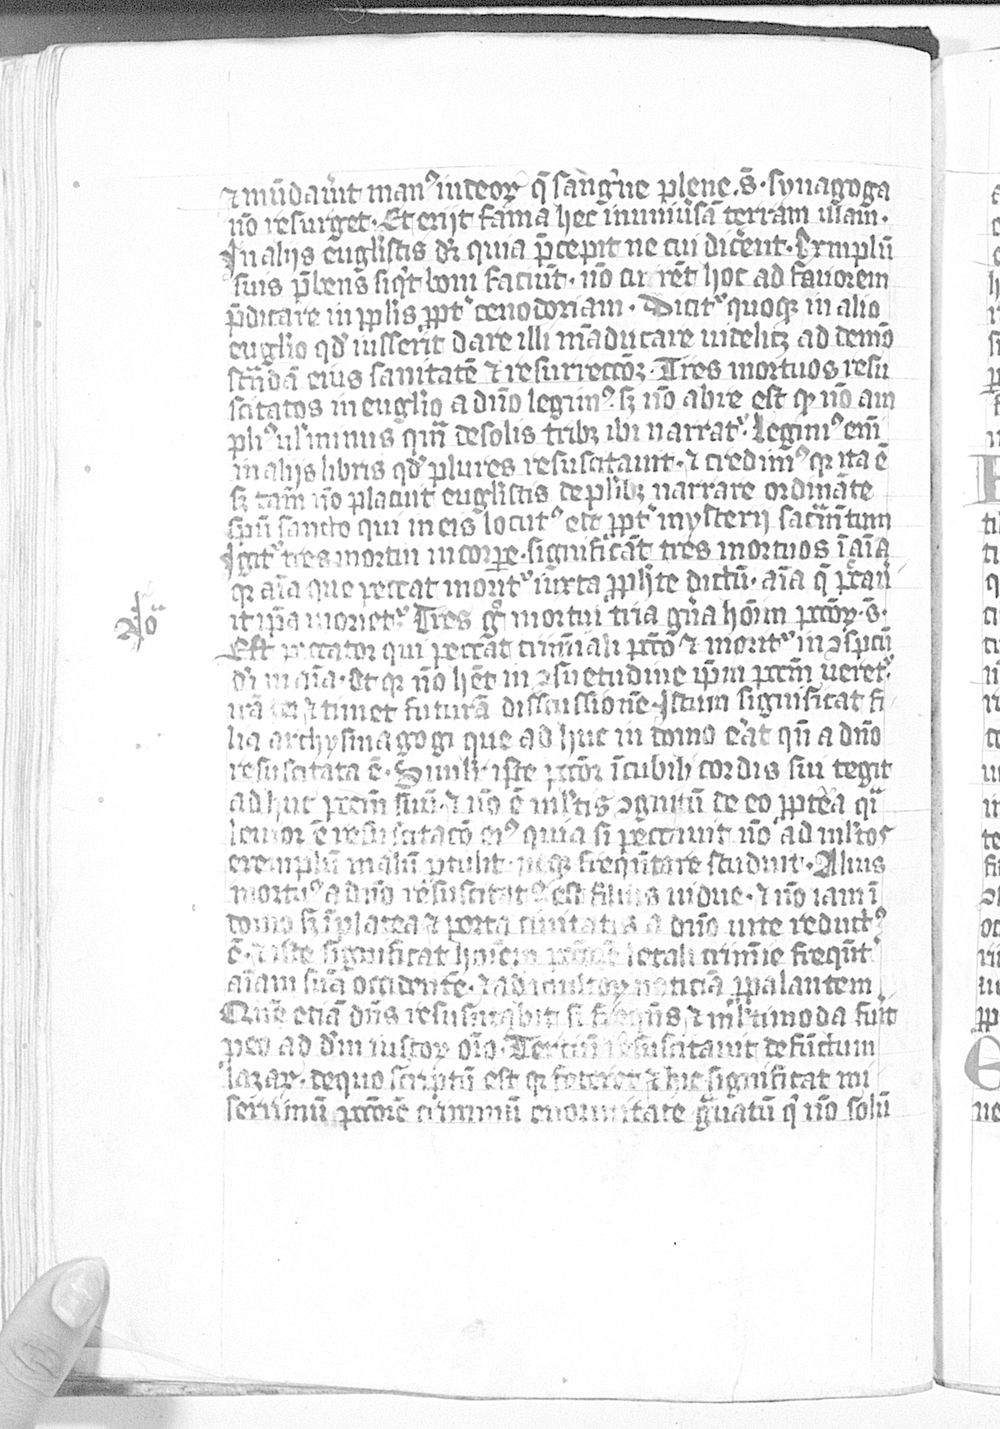 ⁊ mūdau̾it man᷒ iudeoꝝ q̄ sang̾ne plene. s̄. synagoga
nō resurget. Et exijt fama hec in uniu̾sā terram illam.
In alijs eūglīstis dr̄ quia p̄cepit ne cui dicerent. Exmplū
suis p̄bens siqͥt boni faciūt. nō cur rēt hoc ad fauorem
p̄dicare in pplis ꝓpt̾ cenodoxiam. Dicit᷒ quoqꝫ in alio
euglio qđ iusserit dare illi māducare uidelitꝫ ad demō
strādā eius sanitatē ⁊ resurrectōꝫ. Tres mortuos resu
scitatos in euglīo a dn̄o legim᷒. sꝫ nō abre est qꝛ nō am
pli᷒ ul̾ minus qm̄ de solis tribꝫ ibi narrat᷒. Legim᷒ em̄
in alijs libris qđ plures resuscitauit. ⁊ credim᷒ qꝛ ita ē
sꝫ tam̄ nō placuit euglīstis de plībꝫ narrare ordināte
spū sancto qui in eis locut᷒ est ꝓpt̾ mysterij sacrm̄tum
Igit᷒ tres mortui in corꝑe. significāt tres mortuos ī aīa
qꝛ aīa que peccat morit᷒ iuxta ꝓph̄te dictū. aīa q̄ pcau̾
it ip̄a moriet᷒. Tres gͦ mortui tria gn̄a hoīm pctōꝝ. s̄.
No
Est peccator qui peccat criminali pctō ⁊ morit᷒ in ꝯspctu
dī in aīa. Et qꝛ nō hēt in ꝯsuetudine ip̄m pctm̄ ueret᷒
irā dei ⁊ timet futurā discussionē. Istum significat fi
lia archysinagogi que ad huc in domo erat qn̄ a dn̄o
resuscitata ē. Simili᷒ iste pctōr ī cubili cordis sui tegit
ad huc pctm̄ suū. ⁊ nō ē ml̄tis ꝯgnitū de eo ꝓpterea qꝛ
leuior ē resuscitacō ei᷒ quia si peccauit nō ad ml̄tos
exemplū malū ꝑtulit. neqꝫ freqn̄tare studuit. Alius
mortu᷒ a dn̄o resuscitat᷒ est filius uidue. ⁊ nō iam ī
domo sꝫ ī platea ⁊ porta ciuitatis a dn̄o uite reduct᷒
ē. ⁊ iste significat hoīem letali crimīe freqūt᷒
aīam suā occidentē. ⁊ ad multoꝝ noticiā ꝓpalantem
Quē etiā dn̄s resuscitabit si freqn̄s ⁊ ml̄timoda fu̾it
ꝓ eo ad dm̄ iustoꝝ orō. Tertiū resuscitauit defūctum
lazaꝝ. de quo scriptū est qꝛ fetet ⁊ hic significat mi
serrimū pctōrē criminū enormitate gͣuatū qͥ nō solū